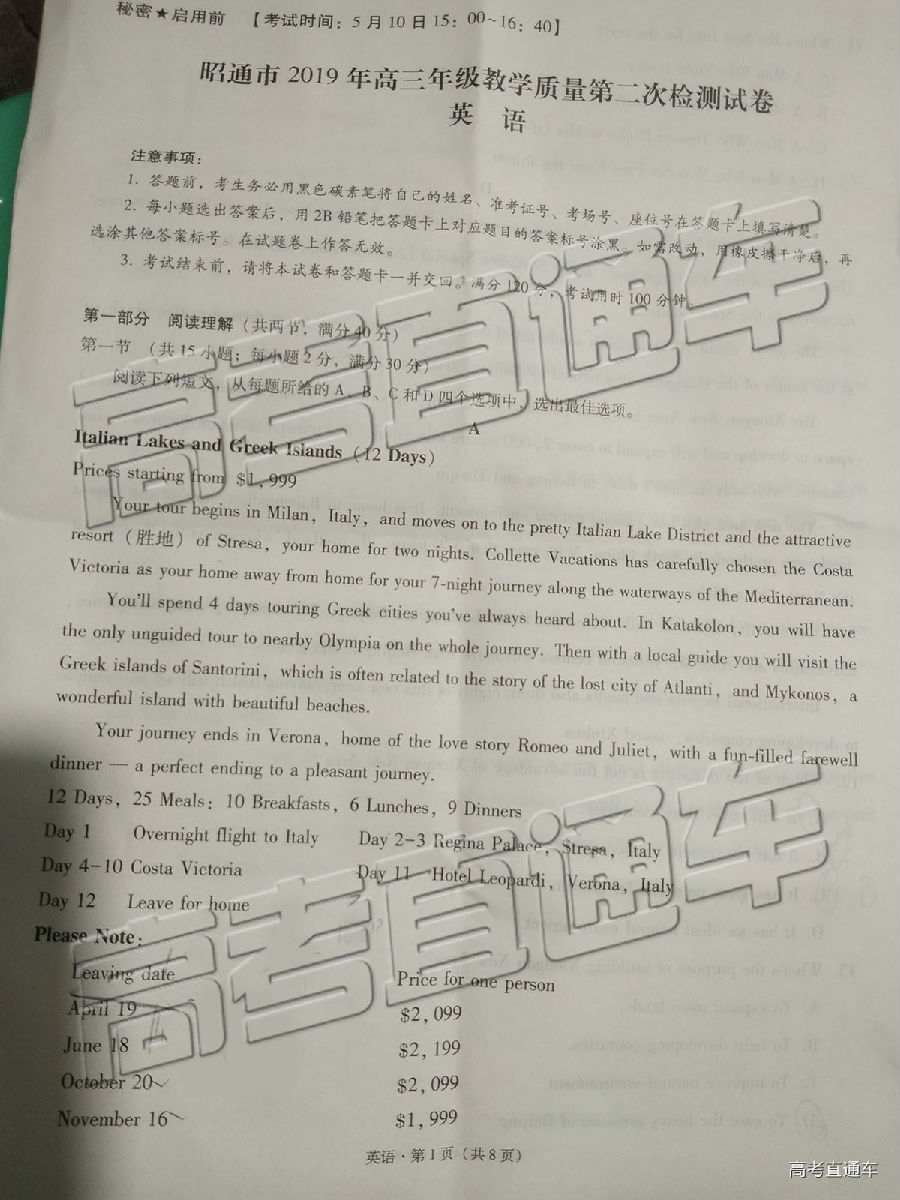 秘密★启用前 【考试时间：5月10日15：00~16：40】
昭通市2019年高三年级教学质量第二次检测试卷
英 语
注意事项：
1. 答题前，考生务必用黑色碳素笔将自己的姓名、准考证号、考场号、座位号在答题卡上填写清楚。
2. 每小题选出答案后，用2B铅笔把答题卡上对应题目的答案标号涂黑。如需改动，用橡皮擦干净后，再
选涂其他答案标号。在试题卷上作答无效。
3. 考试结束前，请将本试卷和答题卡一并交回。满分120分，考试用时100分钟。
第一部分 阅读理解（共两节，满分40分）
第一节 （共15小题；每小题2分，满分30分）
阅读下列短文，从每题所给的A、B、C和D四个选项中，选出最佳选项。
A
Italian Lakes and Greek Islands (12 Days)
Prices starting from $1,999
Your tour begins in Milan, Italy, and moves on to the pretty Italian Lake District and the attractive
resort（胜地）of Stresa, your home for two nights. Collette Vacations has carefully chosen the Costa
Victoria as your home away from home for your 7-night journey along the waterways of the Mediterranean.
You'll spend 4 days touring Greek cities you've always heard about. In Katakolon, you will have
the only unguided tour to nearby Olympia on the whole journey. Then with a local guide you will visit the
Greek islands of Santorini, which is often related to the story of the lost city of Atlanti, and Mykonos, a
wonderful island with beautiful beaches.
Your journey ends in Verona, home of the love story Romeo and Juliet, with a fun-filled farewell
dinner — a perfect ending to a pleasant journey.
12 Days, 25 Meals: 10 Breakfasts, 6 Lunches, 9 Dinners
Day 1 Overnight flight to Italy Day 2-3 Regina Palace, Stresa, Italy
Day 4-10 Costa Victoria Day 11 Hotel Leopardi, Verona, Italy
Day 12 Leave for home
Please Note:
Leaving date Price for one person
April 19 $2,099
June 18 $2,199
October 20 $2,099
November 16 $1,999
英语·第1页（共8页）
高考直通车
高考直通车
高考直通车